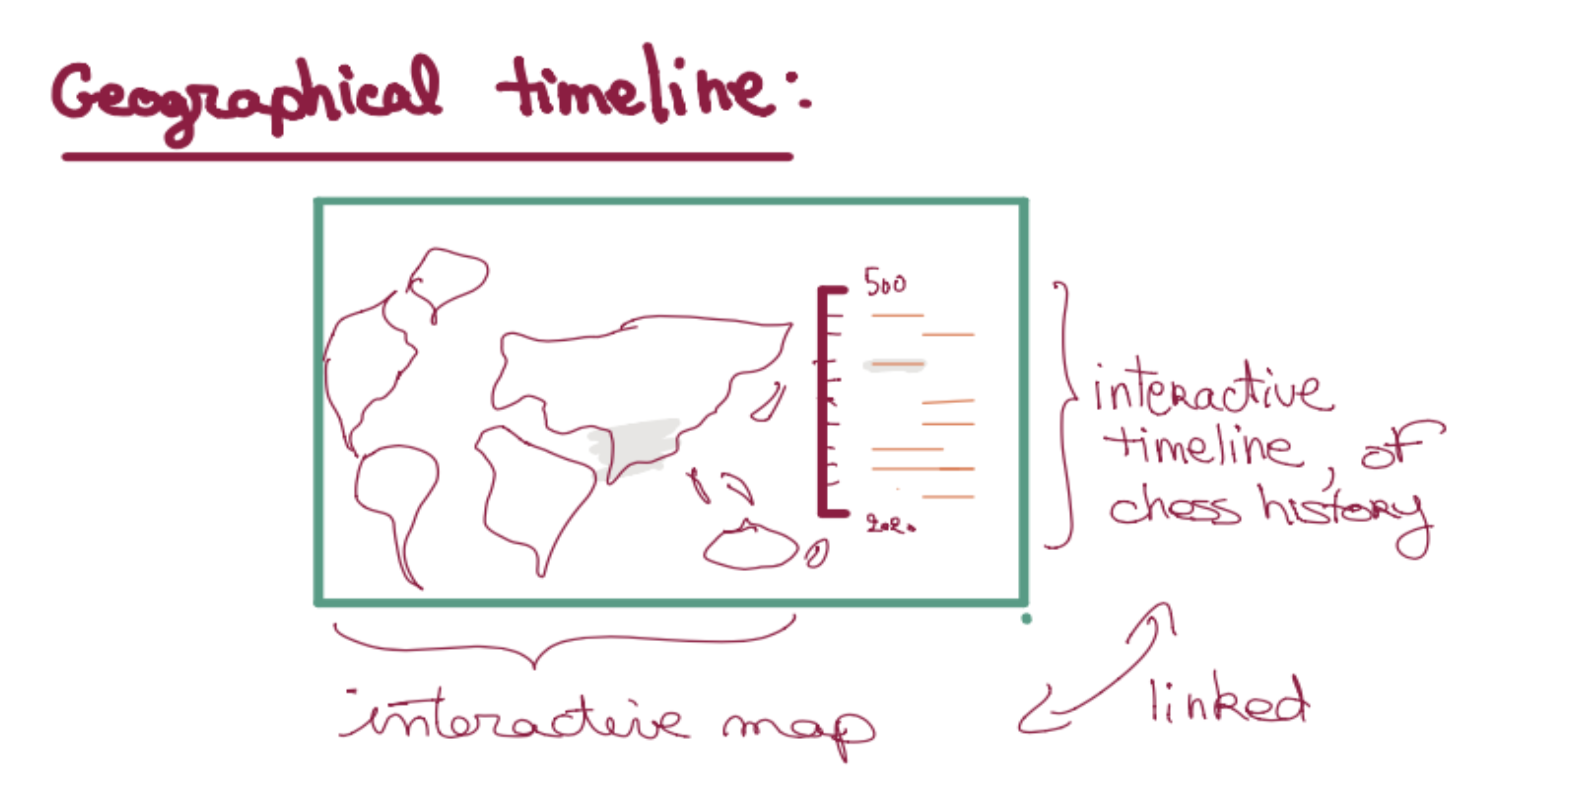 Geographical timeline:
500
2020
interactive
timeline, of
chess history
interactive map
linked